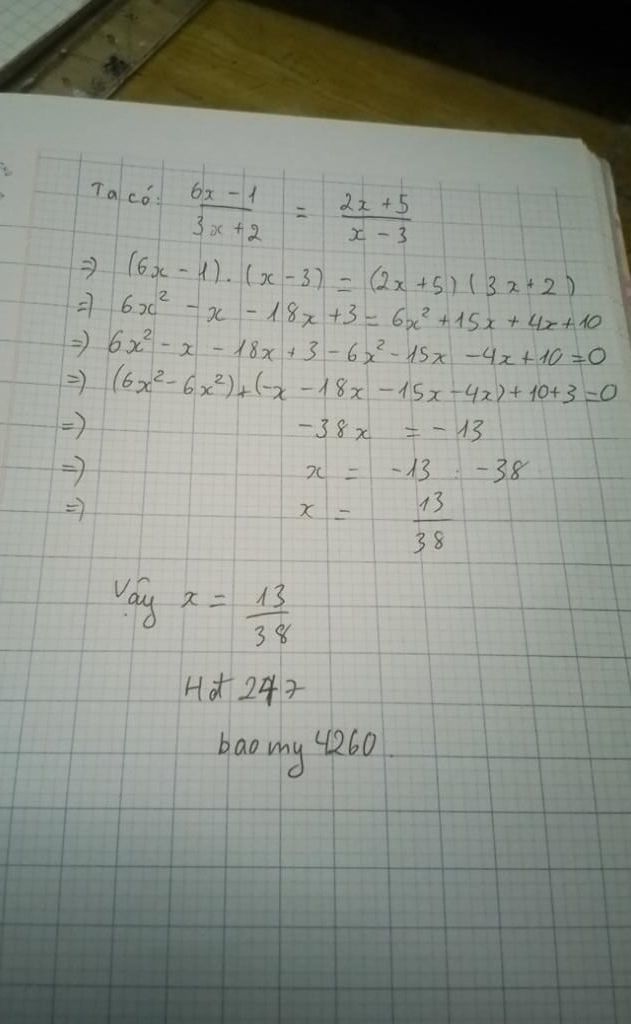 Ta có: (6x - 1)/(3x + 2) = (2x + 5)/(x - 3)
=> (6x - 1) . (x - 3) = (2x + 5) (3x + 2)
=> 6x² - x - 18x + 3 = 6x² + 15x + 4x + 10
=> 6x² - x - 18x + 3 - 6x² - 15x - 4x + 10 = 0
=> (6x² - 6x²) + (-x - 18x - 15x - 4x) + 10 + 3 = 0
=> -38x = -13
=> x = -13 : -38
=> x = 13/38
Vậy x = 13/38
Hđ 247
baomy 4260.